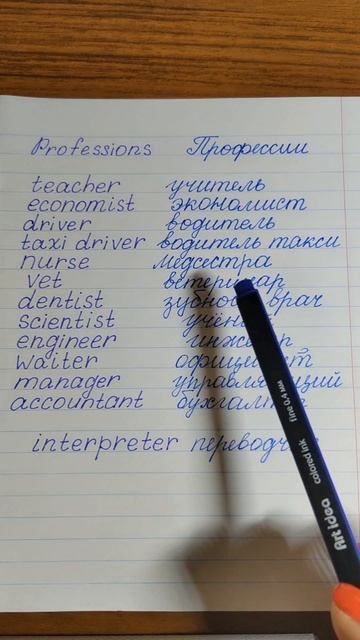 Professions Профессии
teacher учитель
economist экономист
driver водитель
taxi driver водитель такси
nurse медсестра
vet ветеринар
dentist зубной врач
scientist
engineer
waiter
manager
accountant
interpreter
Art idea colored ink fine 0,4 мм